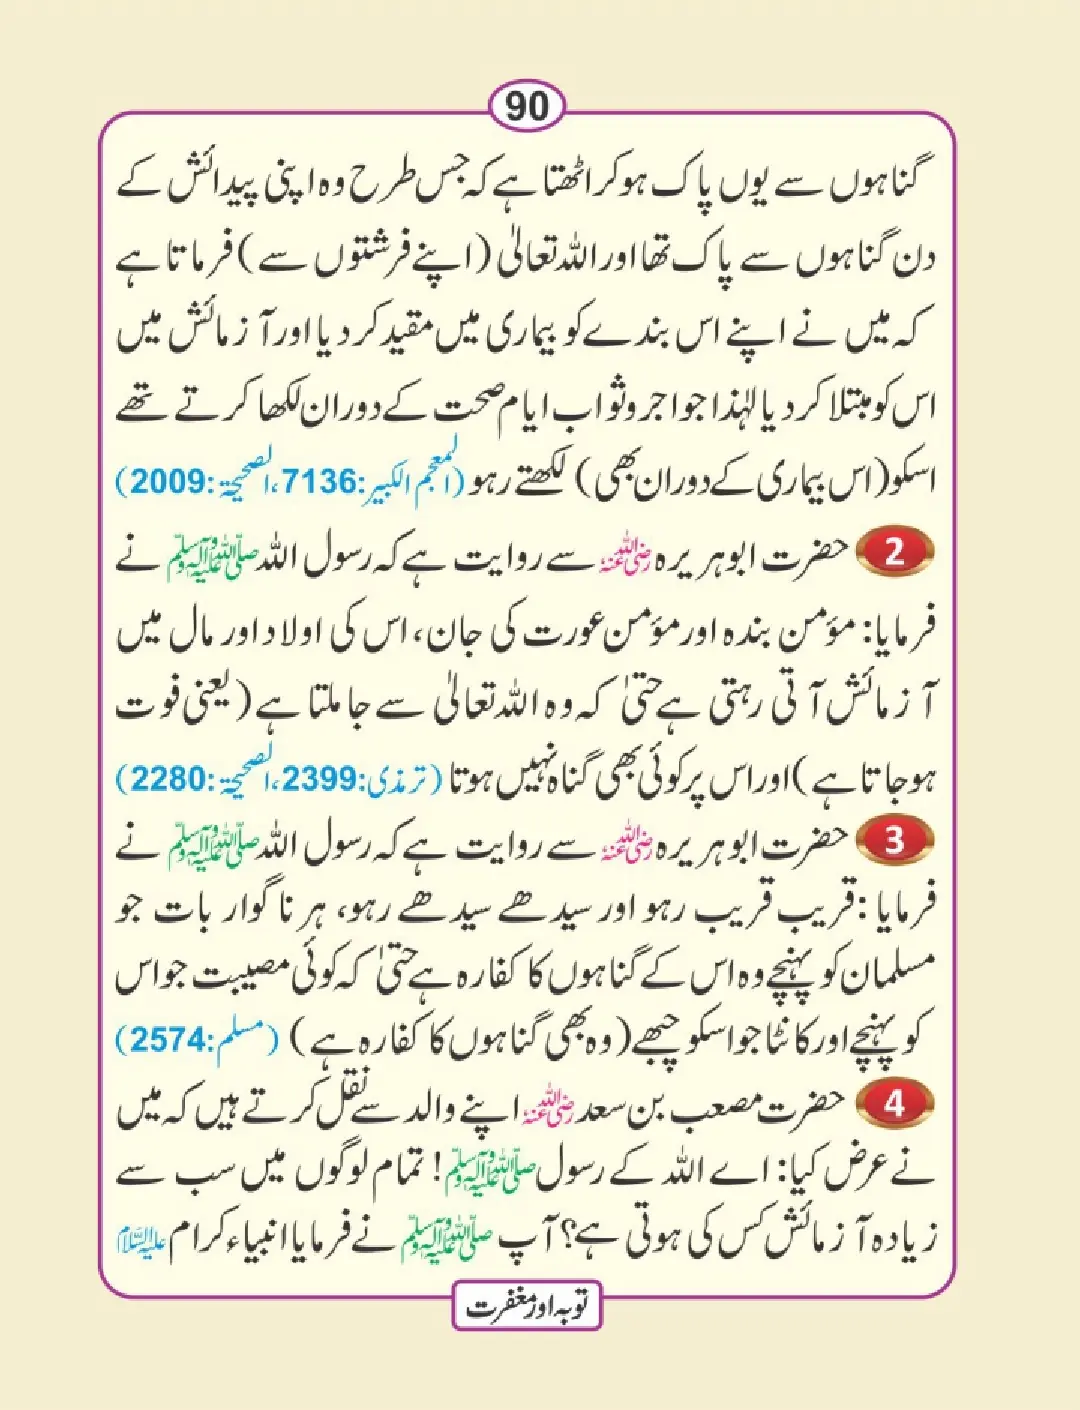 90
گناہوں سے یوں پاک ہوکر اٹھتا ہے کہ جس طرح وہ اپنی پیدائش کے
دن گناہوں سے پاک تھا اور اللہ تعالیٰ (اپنے فرشتوں سے) فرماتا ہے
کہ میں نے اپنے اس بندے کو بیماری میں مقید کردیا اور آزمائش میں
اس کو مبتلا کردیا لہٰذا جو اجر و ثواب ایام صحت کے دوران لکھا کرتے تھے
اسکو (اس بیماری کے دوران بھی) لکھتے رہو (المعجم الکبیر:7136،الصحیحۃ:2009)
2 حضرت ابوہریرہ رضی اللہ عنہ سے روایت ہے کہ رسول اللہ صلی اللہ علیہ وآلہ وسلم نے
فرمایا: مؤمن بندہ اور مؤمن عورت کی جان، اس کی اولاد اور مال میں
آزمائش آتی رہتی ہے حتیٰ کہ وہ اللہ تعالیٰ سے جا ملتا ہے (یعنی فوت
ہو جاتا ہے) اور اس پر کوئی بھی گناہ نہیں ہوتا (ترمذی:2399،الصحیحۃ:2280)
3 حضرت ابوہریرہ رضی اللہ عنہ سے روایت ہے کہ رسول اللہ صلی اللہ علیہ وآلہ وسلم نے
فرمایا: قریب قریب رہو اور سیدھے سیدھے رہو، ہر ناگوار بات جو
مسلمان کو پہنچے وہ اس کے گناہوں کا کفارہ ہے حتیٰ کہ کوئی مصیبت جو اس
کو پہنچے اور کانٹا جو اسکو چبھے (وہ بھی گناہوں کا کفارہ ہے) (مسلم:2574)
4 حضرت مصعب بن سعد رضی اللہ عنہ اپنے والد سے نقل کرتے ہیں کہ میں
نے عرض کیا: اے اللہ کے رسول صلی اللہ علیہ وآلہ وسلم! تمام لوگوں میں سب سے
زیادہ آزمائش کس کی ہوتی ہے؟ آپ صلی اللہ علیہ وآلہ وسلم نے فرمایا انبیاء کرام علیہ السلام
توبہ اور مغفرت